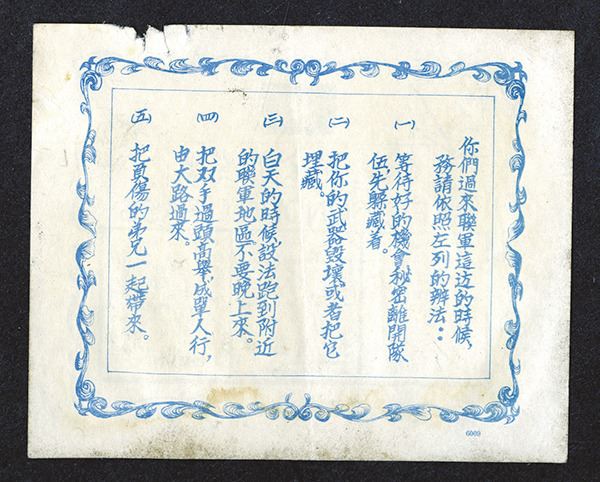 你們過來聯軍這边的時候，
務請依照左列的辦法：
(一) 等待好的機會秘密離開隊
伍先躲藏着。
(二) 把你的武器毀壞或者把它
埋藏。
(三) 白天的時候，設法跑到附近
的聯軍地區不要晚上來。
(四) 把双手過頭高舉，成單人行，
由大路過來。
(五) 把負傷的弟兄一起帶來。
6009